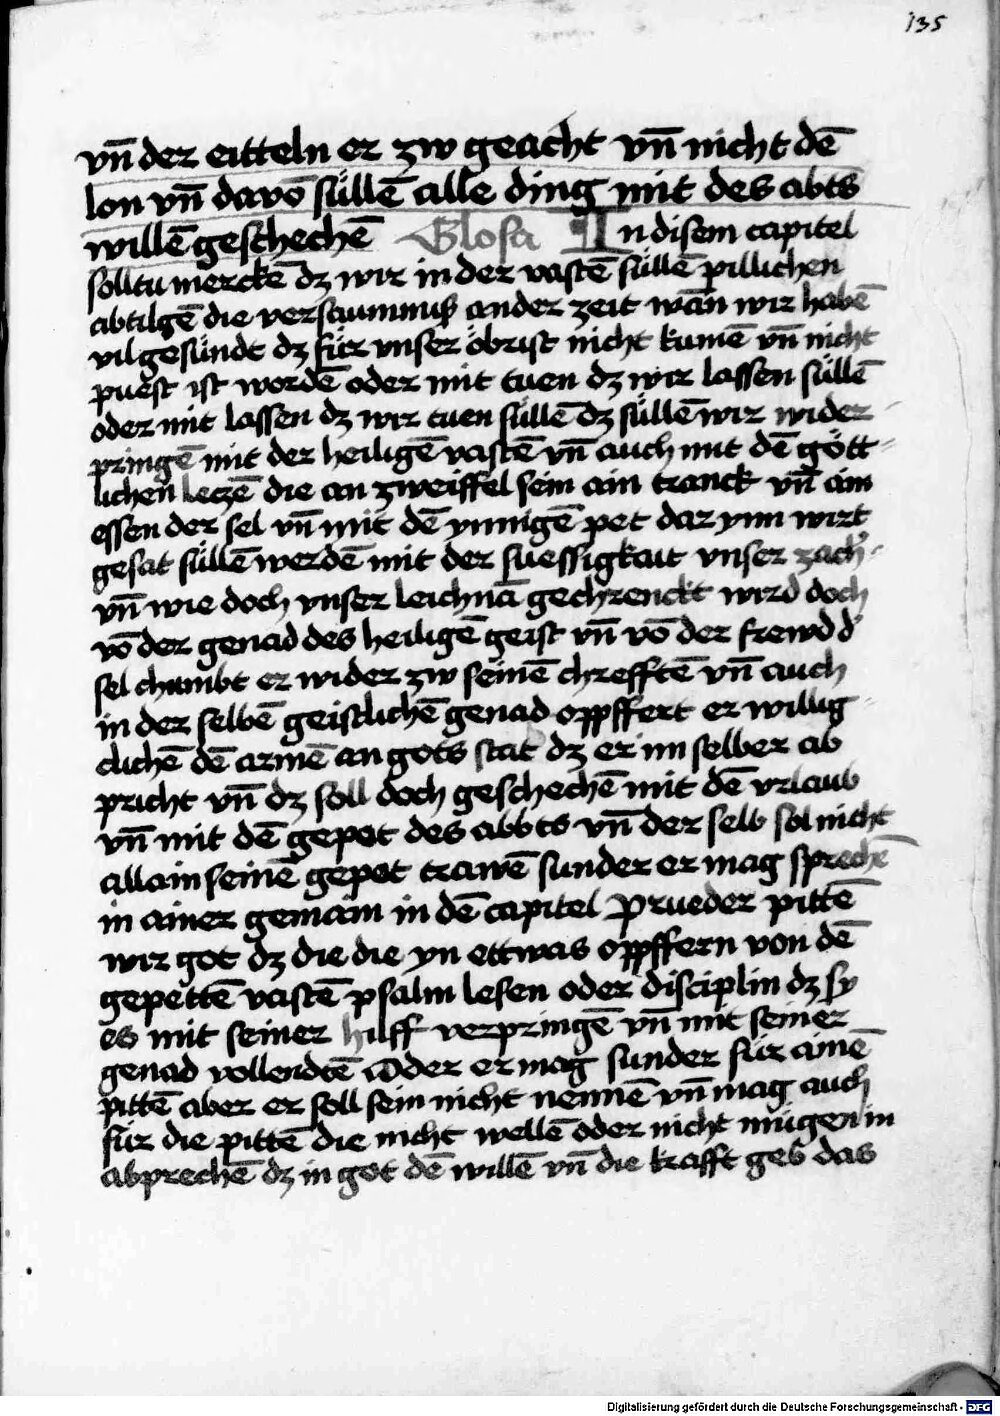 135
vn̄ der eitteln er zw geacht vn̄ nicht dē
lon vn̄ davō süllē alle ding mit des abts
willē geschechē Glosa In disem capitel
solltu merckē dz wir in der vastē süllē pillichen
abtilgē die versaumnuß ander zeit wān wir habē
vil gesündt dz für vnser öbrist nicht kumē vn̄ nicht
puest ist wordē oder mit tuen dz wir lassen süllē
oder mit lassen dz wir tuen süllē dz süllē wir wider
pringē mit der heiligē vastē vn̄ auch mit dē gött-
lichen leczē die an zweiffel sein ain tranck vn̄ ain
essen der sel vn̄ mit dē ynnigē pet dar ynn wirt
gesat süllē werdē mit der suessigkait vnser zach
vn̄ wie doch vnser leichnā gechrenckt wird doch
vō der genad des heiligē geist vn̄ vō der frewd d'
sel chumbt er wider zw seinē chrefftē vn̄ auch
in der selbē geistlichē genad oppffert er willig
clichē dē armē an gots stat dz er im selber ab
pricht vn̄ dz soll doch geschechē mit dē vrlaub
vn̄ mit dē gepot des abbts vn̄ der selb sol nicht
allain seinē gepet trawē sunder er mag sprechē
in ainer gemain in dē capitel prueder pittē
wir got dz die die yn ettwas oppffern von dē
gepettē vastē psalm lesen oder disciplin dz sy
es mit seiner hilff verpringē vn̄ mit seiner
genad vollendtē Oder er mag sunder für ainē
pittē aber er soll sein nicht nennē vn̄ mag auch
für die pittē die nicht wellē oder nicht mügen in
abprechē dz in got dē willē vn̄ die krafft geb das
Digitalisierung gefördert durch die Deutsche Forschungsgemeinschaft - DFG